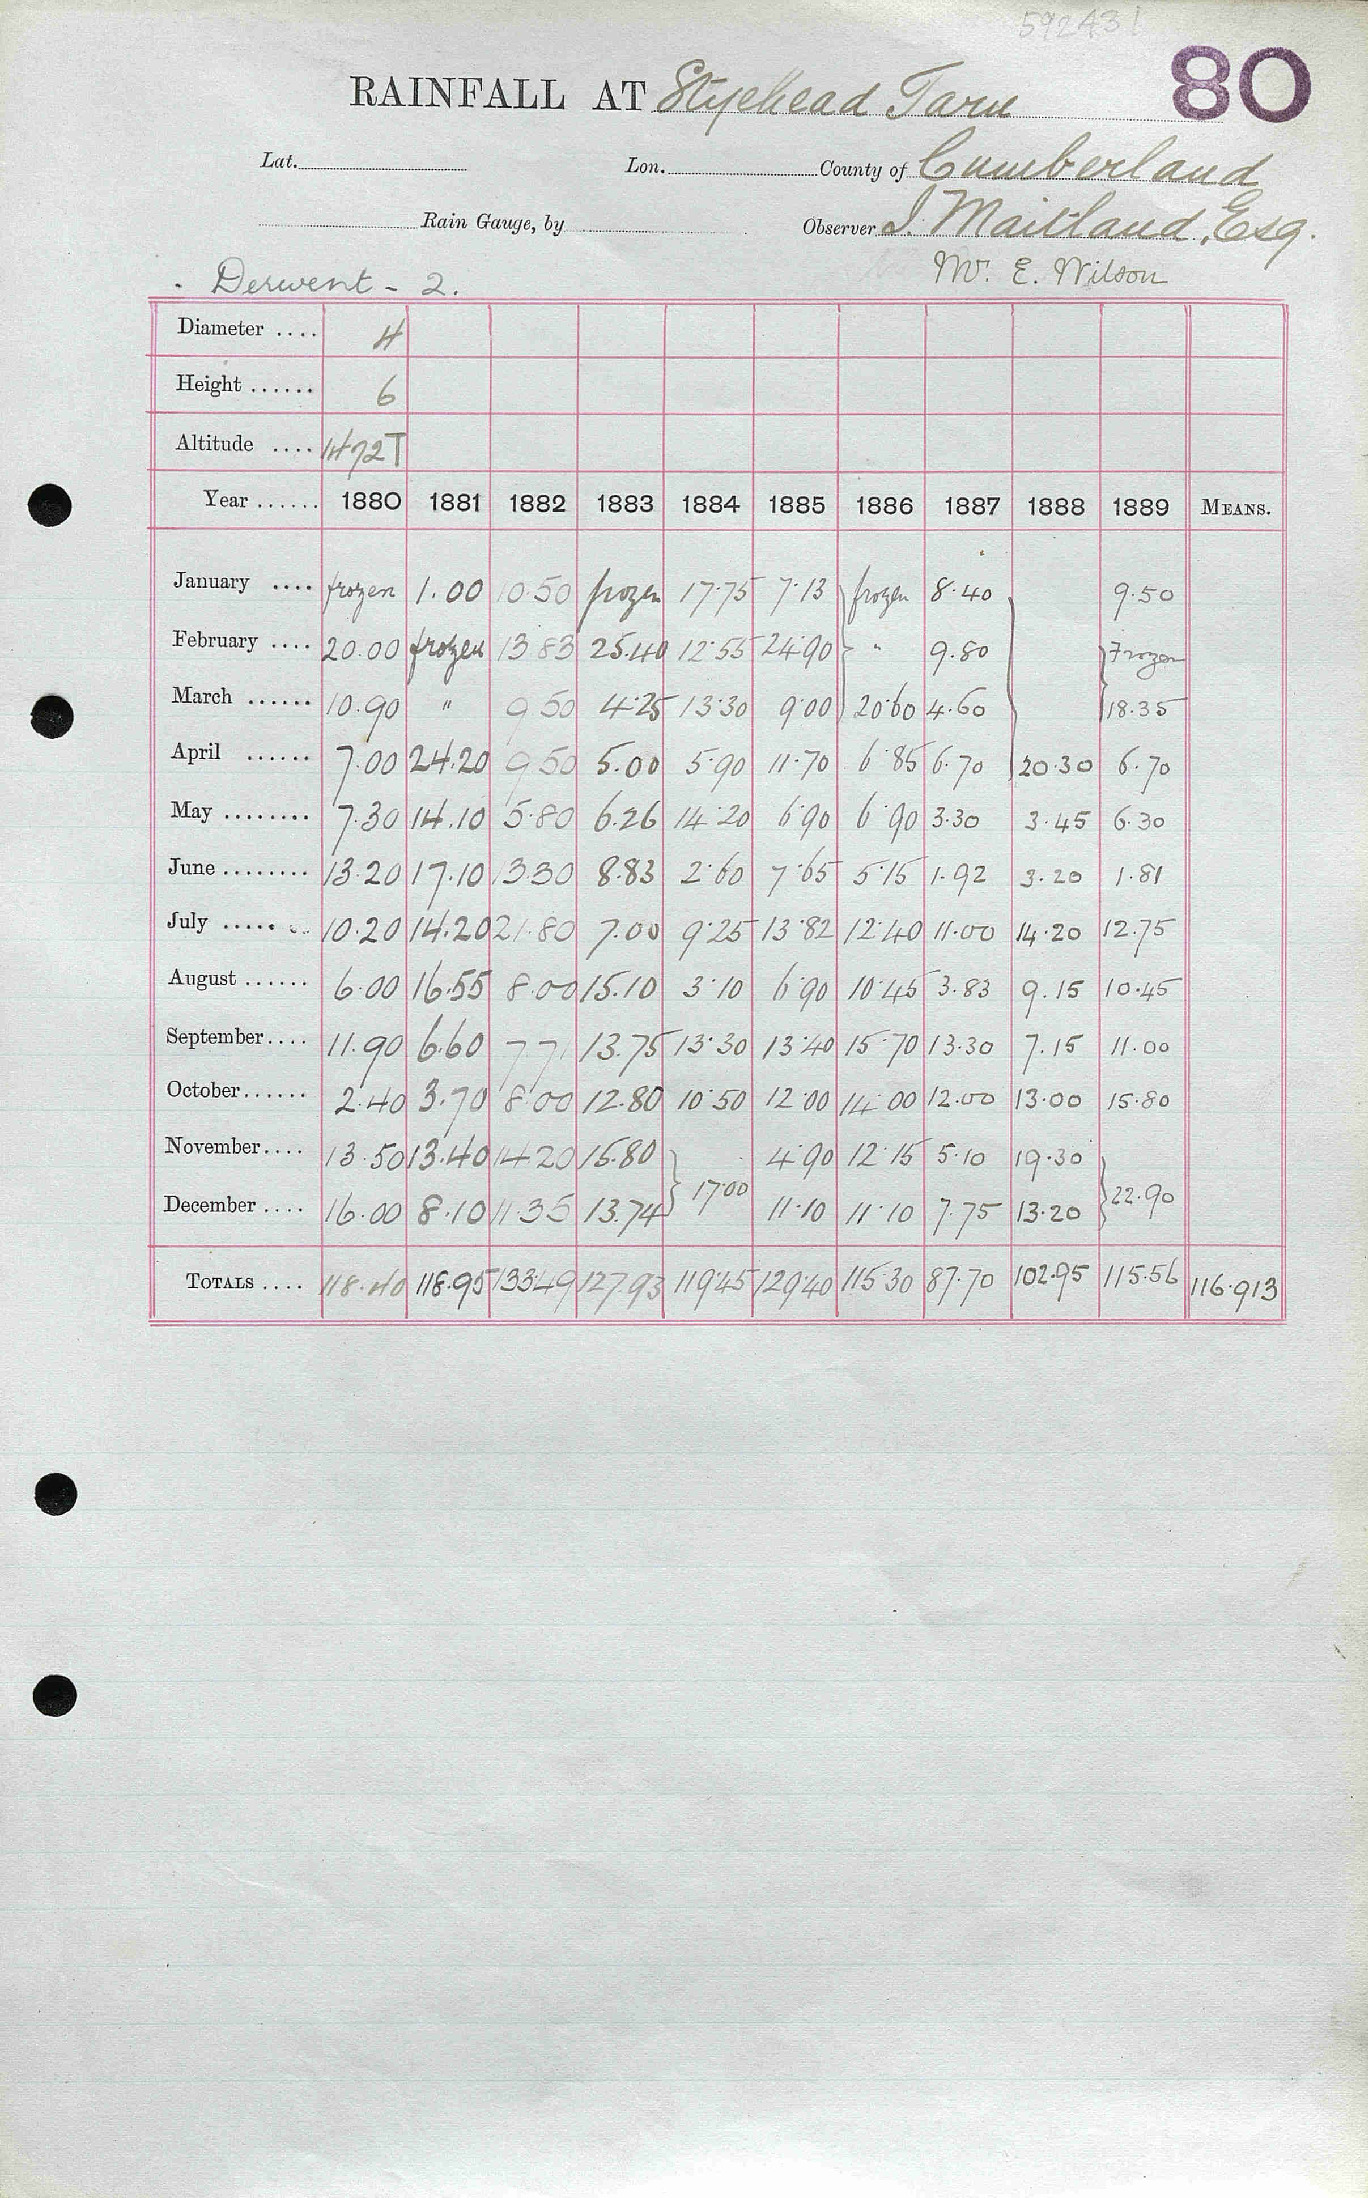 592431
80
RAINFALL AT Styehead Tarn
Lat. Lon. County of Cumberland
Rain Gauge, by Observer I. Maitland, Esq.
Mr. E. Wilson
Derwent - 2.
Diameter .... 4
Height ...... 6
Altitude .... 1472T
Year ...... 1880 1881 1882 1883 1884 1885 1886 1887 1888 1889 MEANS.
January .... frozen 1.00 10.50 frozen 17.75 7.13 frozen 8.40 9.50
February .... 20.00 frozen 13.83 25.40 12.55 24.90 " 9.80 Frozen
March ...... 10.90 " 9.50 4.25 13.30 9.00 20.60 4.60 18.35
April ...... 7.00 24.20 9.50 5.00 5.90 11.70 6.85 6.70 20.30 6.70
May ........ 7.30 14.10 5.80 6.26 14.20 6.90 6.90 3.30 3.45 6.30
June ........ 13.20 17.10 13.30 8.83 2.60 7.65 5.15 1.92 3.20 1.81
July ........ 10.20 14.20 21.80 7.00 9.25 13.82 12.40 11.00 14.20 12.75
August ...... 6.00 16.55 8.00 15.10 3.10 6.90 10.45 3.83 9.15 10.45
September .... 11.90 6.60 7.71 13.75 13.30 13.40 15.70 13.30 7.15 11.00
October ...... 2.40 3.70 8.00 12.80 10.50 12.00 14.00 12.00 13.00 15.80
November .... 13.50 13.40 14.20 15.80 4.90 12.15 5.10 19.30
December .... 16.00 8.10 11.35 13.74 17.00 11.10 11.10 7.75 13.20 22.90
TOTALS .... 118.40 118.95 133.49 127.93 119.45 129.40 115.30 87.70 102.95 115.56 116.913